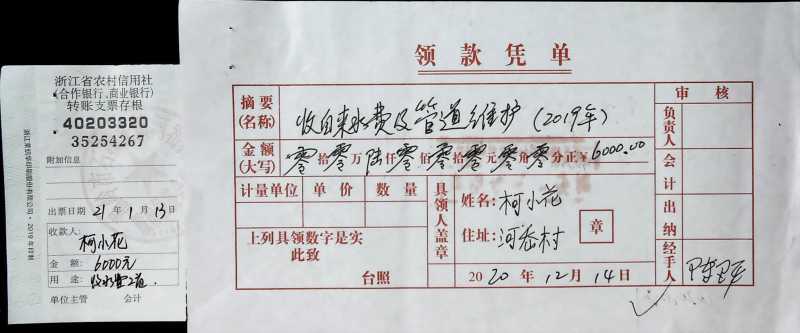 浙江省农村信用社
(合作银行、商业银行)
转账支票存根
40203320
35254267
附加信息
出票日期 21 年 1 月 13 日
收款人:
柯小花
金 额: 6000元
用 途:
单位主管 会计
领款凭单
摘要
(名称)
收自来水费及管道维护 (2019年)
金额
(大写)
零拾零万陆仟零佰零拾零元零角零分正¥6000.00
计量单位 单价 数量
上列具领数字是实
此致
台照
具领人盖章
姓名: 柯小花
住址: 河岙村
章
2020 年 12 月 14 日
审核
负责人
会计
出纳
经手人